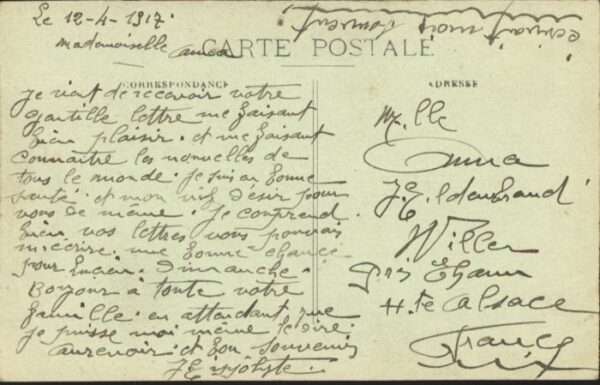 Le 12-4-1917.
Mademoiselle Anna
CARTE POSTALE
écrivait moi souvent
CORRESPONDANCE
Je vient de recevoir votre
gentille lettre me faisant
bien plaisir. et me faisant
connaitre les nouvelles de
tous le monde. je suis en bonne
santé. et mon vif désir pour
vous de même. je comprend
bien vos lettres vous pouvais
m'écrire. une bonne chance
pour Lucien. Dimanche.
Bonjour à toute votre
famille. en attendant que
je puisse moi même le dire.
aurevoir et bon souvenir
ADRESSE
Mlle
Anna
Willer
Thann
Hte Alsace
France